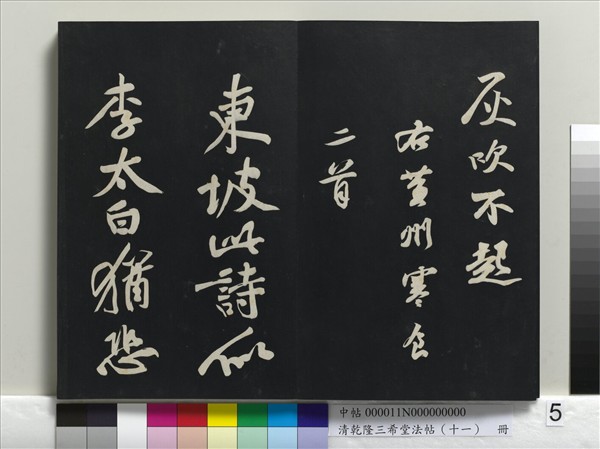 灰吹不起
右黄州寒食
二首
東坡此詩似
李太白猶恐
中帖 000011N000000000
清乾隆三希堂法帖（十一） 冊
5